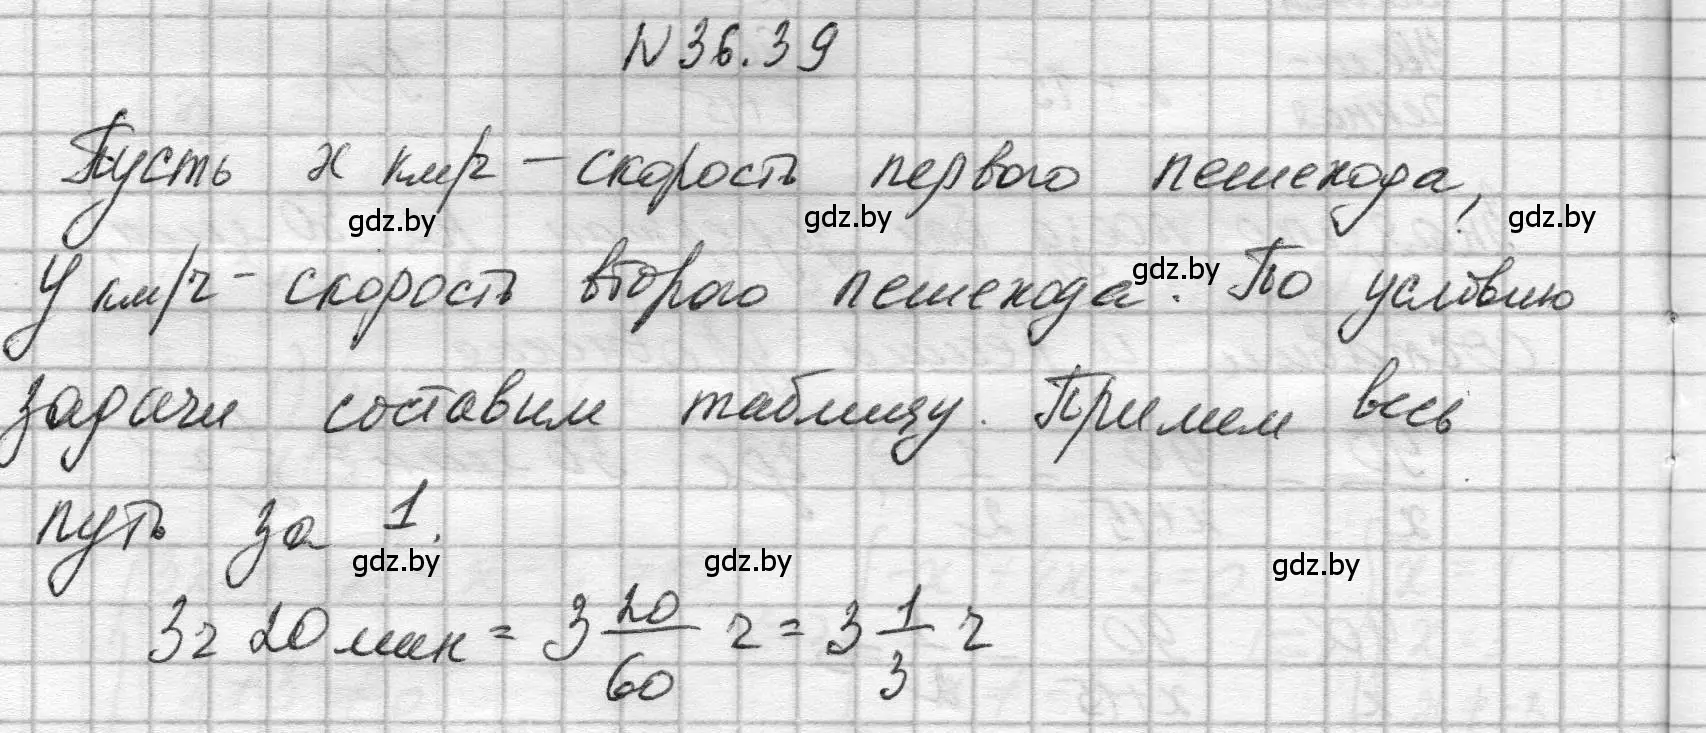 N 36.39
Пусть x км/ч – скорость первого пешехода,
gdz.by gdz.by gdz.by
y км/ч – скорость второго пешехода. По условию
gdz.by
задачи составим таблицу. Примем весь
путь за 1.
gdz.by gdz.by gdz.by
3ч 20 мин = 3 20/60 ч = 3 1/3 ч